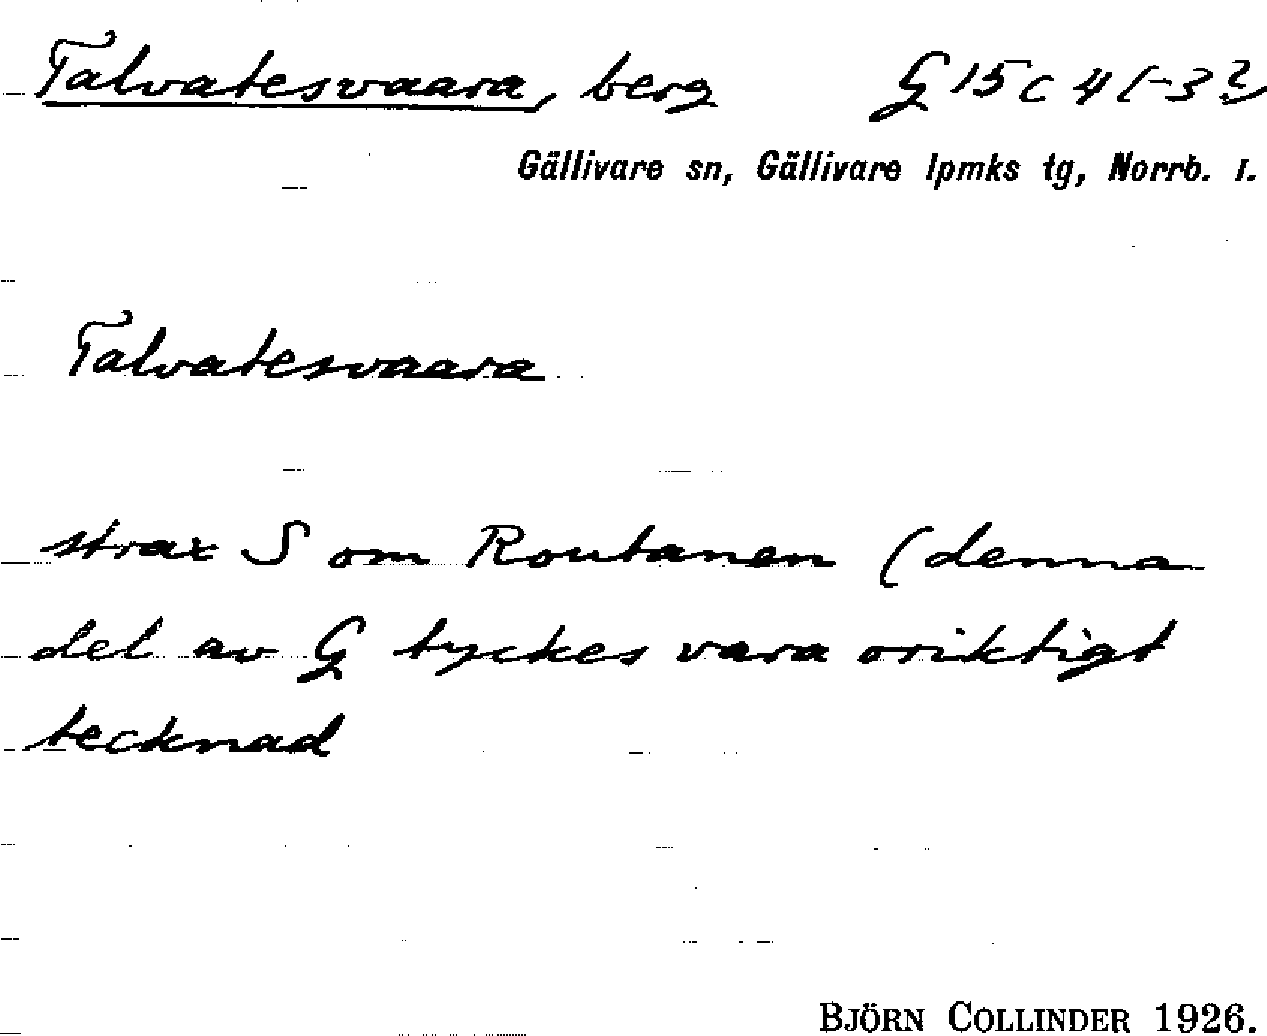 Talvatesvaara, berg G 15 c 4 (-3?)
Gällivare sn, Gällivare lpmks tg, Norrb. l.
Talvatesvaara
strax S om Routanen (denna
del av G tyckes vara oriktigt
tecknad
BJÖRN COLLINDER 1926.